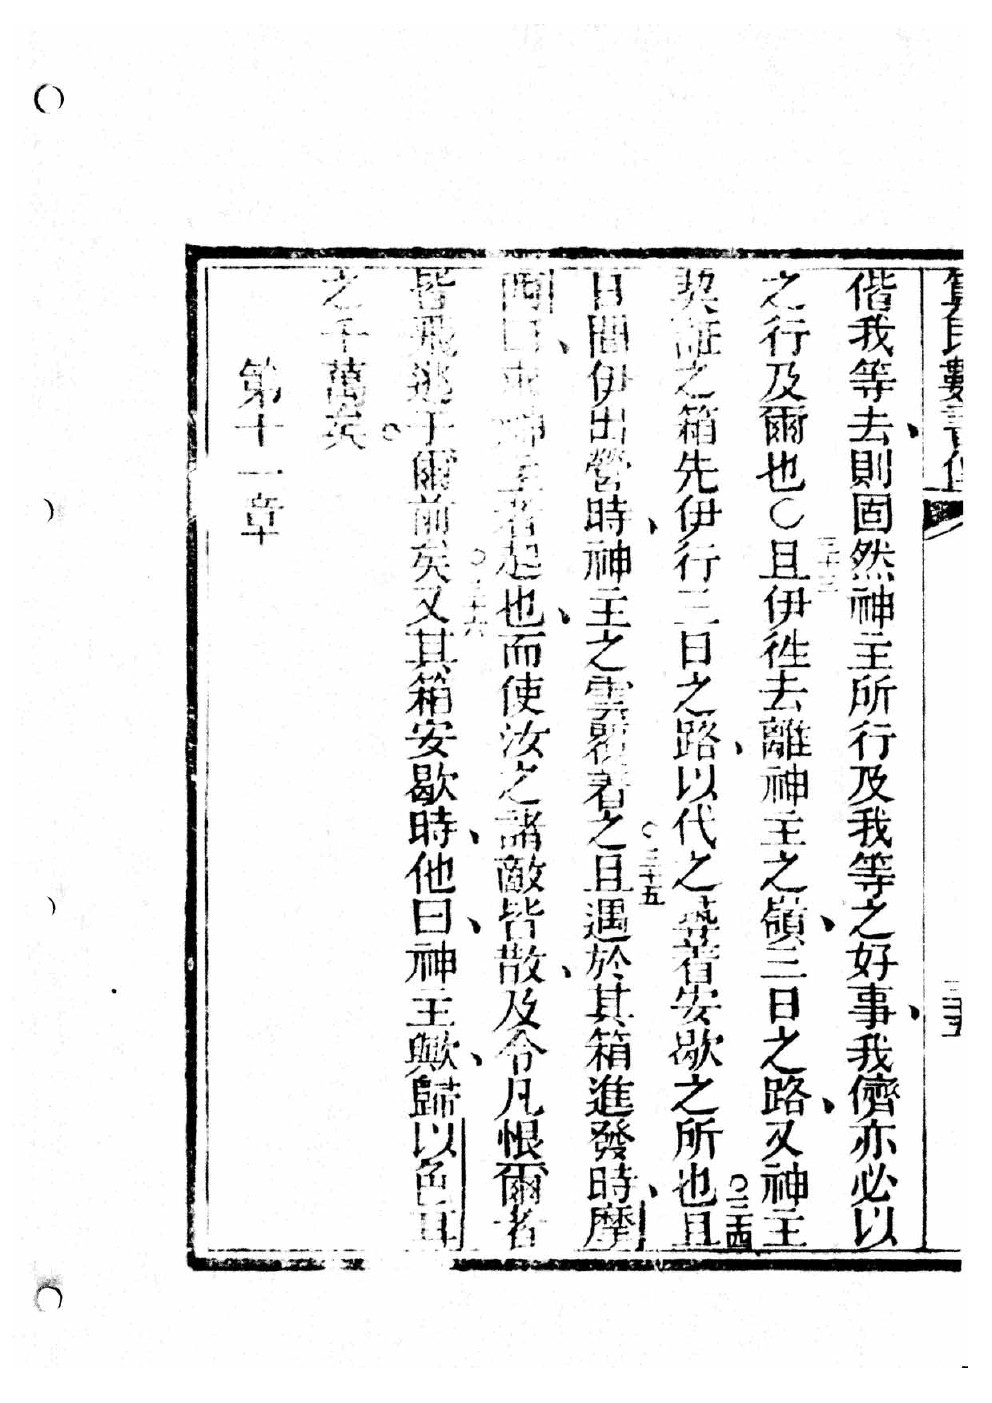 算民數書傳 三十五
偕我等去、則固然神主所行及我等之好事、我儕亦必以
之行及爾也〇三十三且伊徃去離神主之嶺、三日之路、又神主
契証之箱先伊行三日之路、以代之尋著安歇之所也〇三十四且
日間伊出營時、神主之雲覆著之〇三十五且遇於其箱進發時、摩
西曰、神主者起也、而使汝之諸敵皆散、及令凡恨爾者
皆飛逃于爾前矣〇三十六又其箱安歇時、他曰、神主歟、歸以色耳
之千萬矣〇
第十一章